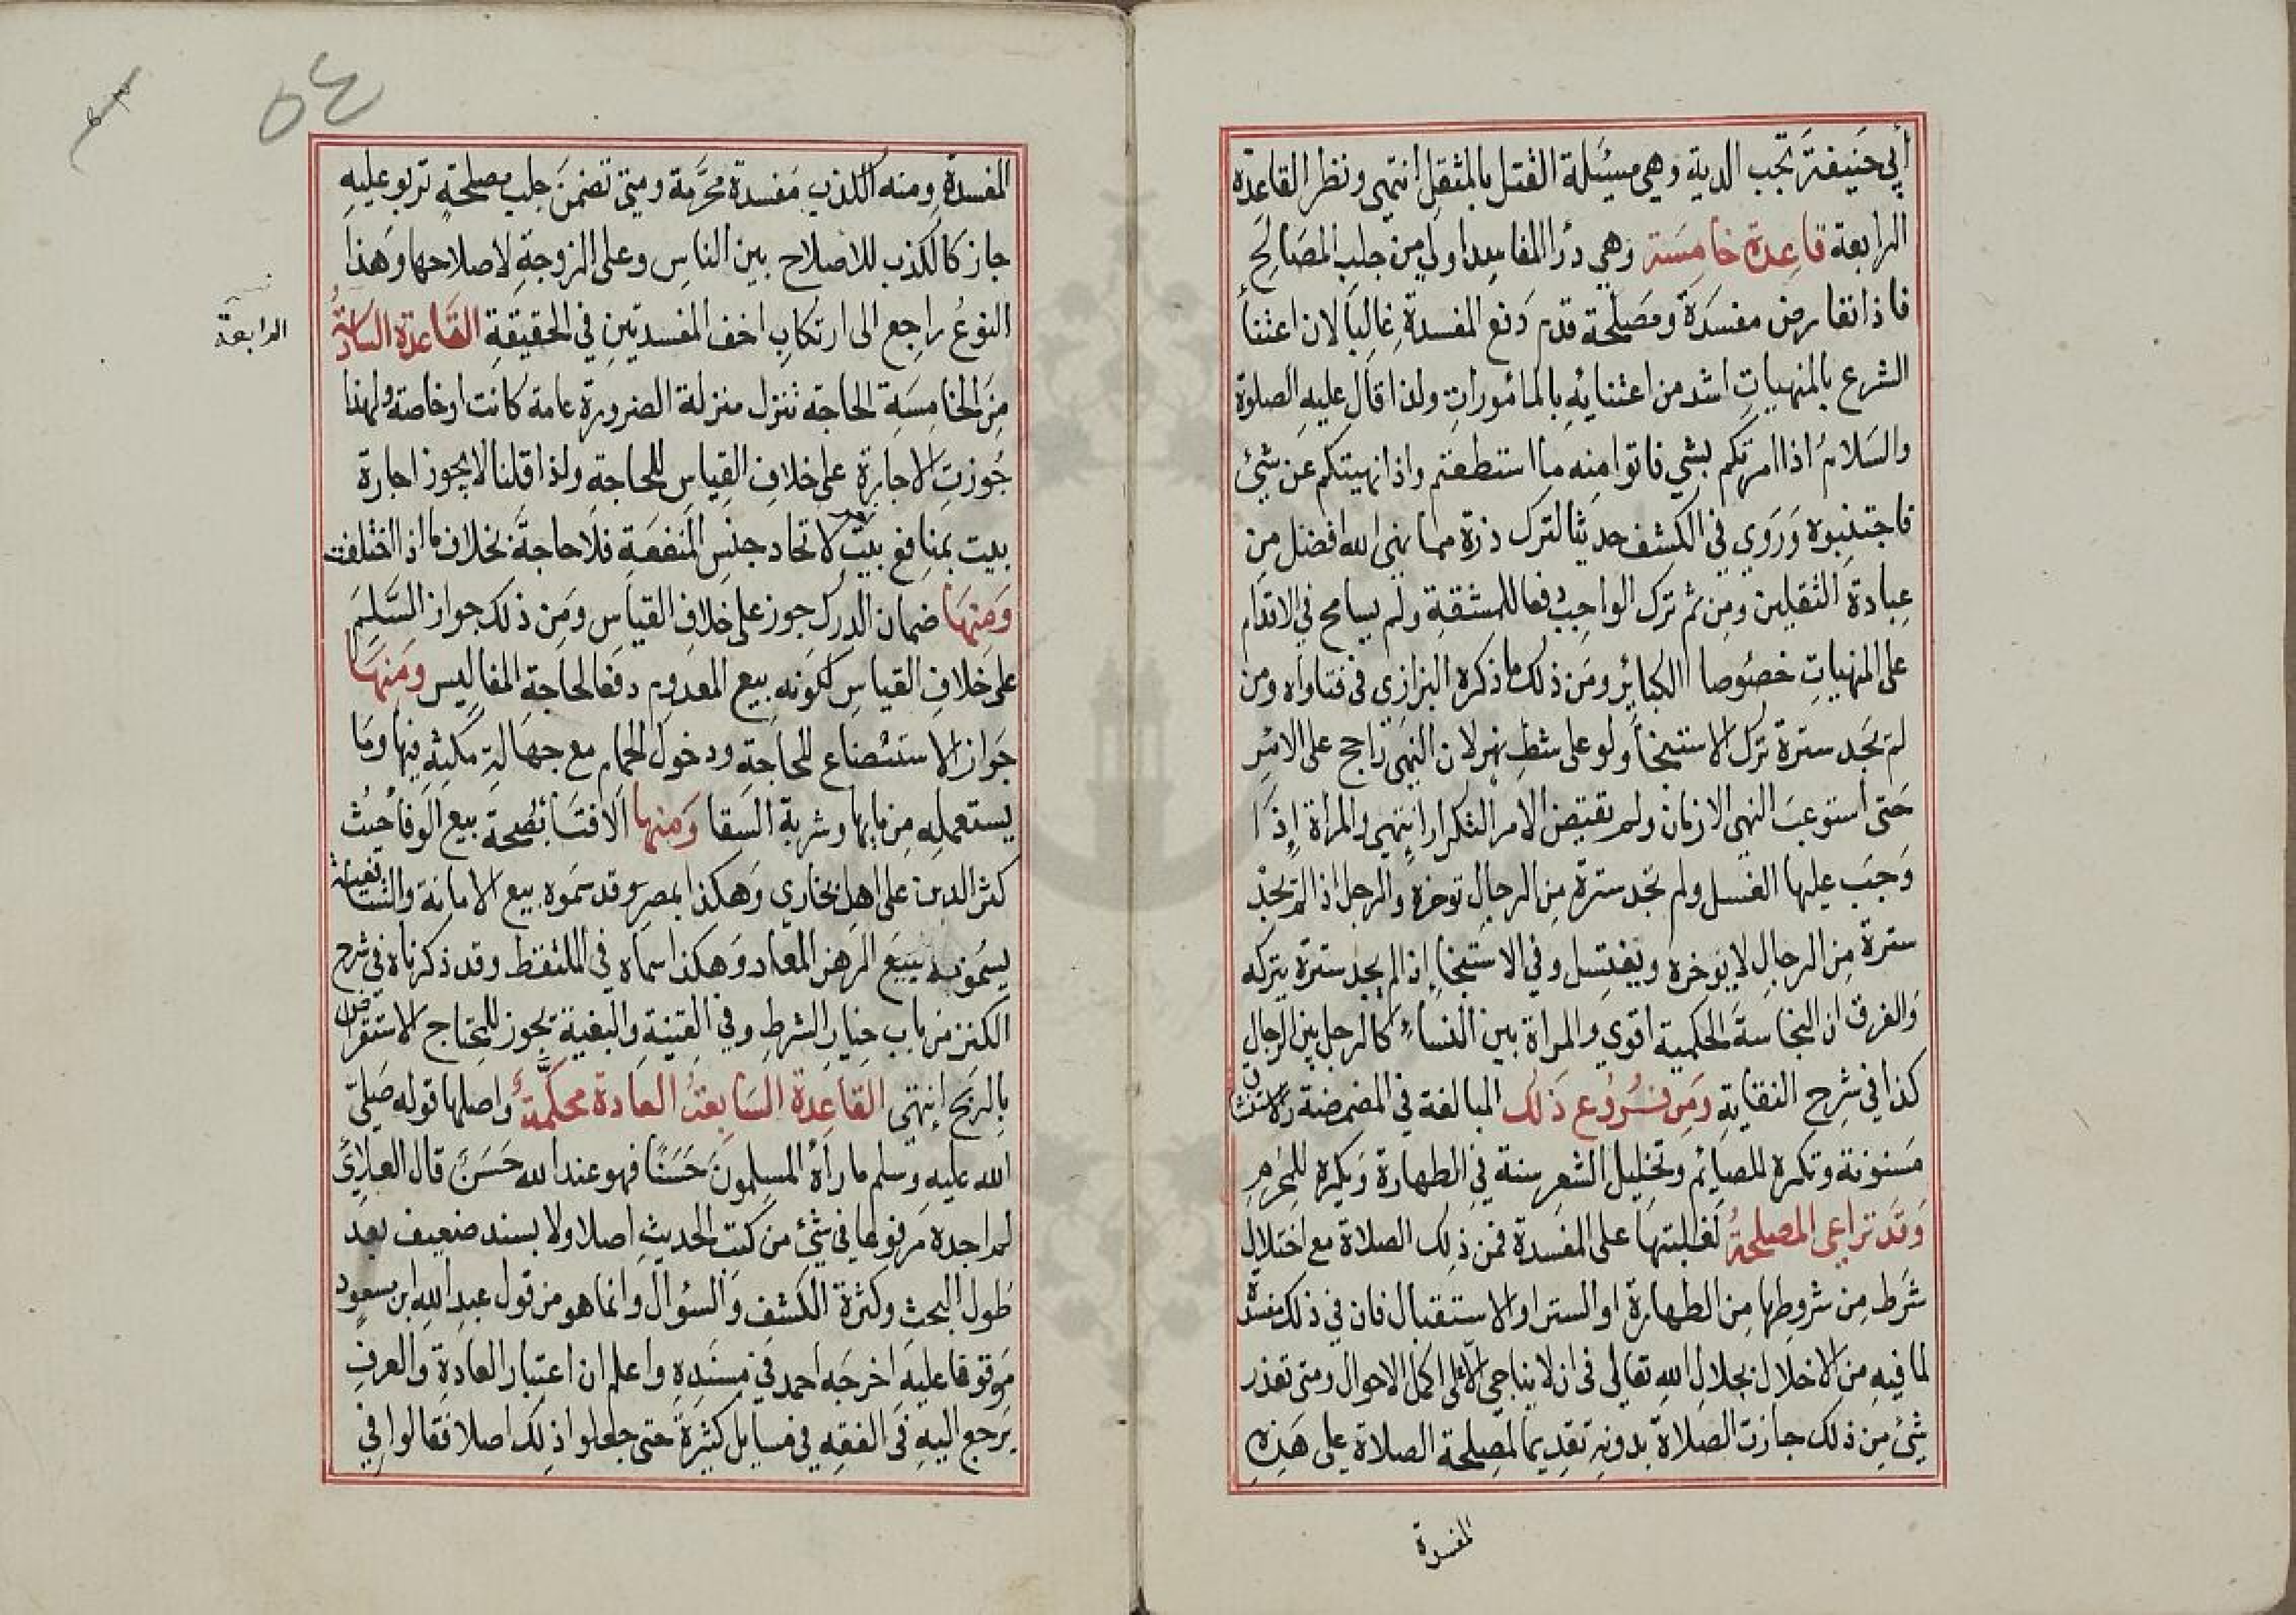 أبي حنيفة تجب الدية وهي مسئلة القتل بالمثقل انتهى ونظر القاعدة
الرابعة قاعدة خامسة وهي درأ المفاسد اولي من جلب المصالح
فاذا تعارض مفسدة ومصلحة قدم دفع المفسدة غالبا لان اعتنأ
الشرع بالمنهيات اشد من اعتنايه بالمأمورات ولذا قال عليه الصلوة
والسلام اذا امرتكم بشي فاتوا منه ما استطعتم واذا نهيتكم عن شئ
فاجتنبوه وروي في الكشف حديثا لترك ذرة مما نهى الله افضل من
عبادة الثقلين ومن ثم ترك الواجب دفعا للمشقة ولم يسامح في الاقدام
على المنهيات خصوصا الكبائر ومن ذلك ما ذكره البزازي في فتاواه ومن
لم يجد سترة ترك الاستنجأ ولو على شط نهر لان النهي راجح على الامر
حتى استوعب النهي الازمان ولم تقتض الامر التكرار انتهى والمرأة إذا
وجب عليها الغسل ولم تجد سترة من الرجال توخره والرجل اذا لم يجد
سترة من الرجال لا يوخره ويغتسل وفي الاستنجأ إذا لم يجد سترة يتركه
والفرق ان النجاسة الحكمية اقوي والمرأة بين النسأ كالرجل بين الرجال
كذا في شرح النقاية ومن فروع ذلك المبالغة في المضمضة والاستنشاق
مسنونة وتكره للصائم وتخليل الشعر سنة في الطهارة ويكره للمحرم
وقد تراعي المصلحة لغلبتها على المفسدة فمن ذلك الصلاة مع اختلال
شرط من شروطها من الطهارة او الستر او الاستقبال فان في ذلك مفسدة
لما فيه من الاخلال بجلال الله تعالى في ان لا يناجى الا على اكمل الاحوال ومتى تعذر
شئ من ذلك جازت الصلاة بدونه تقديما لمصلحة الصلاة على هذه
المفسدة
٥٤
المفسدة ومنه الكذب مفسدة محرمة ومتى تضمن جلب مصلحة تربو عليه
جاز كالكذب للاصلاح بين الناس وعلى الزوجة لاصلاحها وهذا
النوع راجع الى ارتكاب اخف المفسدتين في الحقيقة القاعدة السادسة
الرابعة
من الخامسة الحاجة تنزل منزلة الضرورة عامة كانت او خاصة ولهذا
جوزت الاجارة على خلاف القياس للحاجة ولذا قلنا لا يجوز اجارة
بيت بمنافع بيت لاتحاد جنس المنفعة فلا حاجة بخلاف ما اذا اختلفت
ومنها ضمان الدرك جوز على خلاف القياس ومن ذلك جواز السلم
على خلاف القياس لكونه بيع المعدوم دفعا لحاجة المفاليس ومنها
جواز الاستصناع للحاجة ودخول الحمام مع جهالة مكثه فيها وما
يستعمله من مايها وشربة السقا ومنها الافتأ بصحة بيع الوفا حيث
كثر الدين على اهل بخاري وهكذا بمصر وقد سموه بيع الامانة والشافعية
يسمونه ببيع الرهن المعاد وهكذا سماه في الملتقط وقد ذكرناه في شرح
الكنز من باب خيار الشرط وفي القنية والبغية تجوز للمحتاج الاستقراض
بالربح إنتهى القاعدة السابعة العادة محكمة واصلها قوله صلى
الله عليه وسلم ما رأه المسلمون حسنا فهو عند الله حسن قال العلاي
لم اجده مرفوعا في شئ من كتب الحديث اصلا ولا بسند ضعيف بعد
طول البحث وكثرة الكشف والسؤال وانما هو من قول عبد الله ابن مسعود
موقوفا عليه اخرجه احمد في مسنده واعلم ان اعتبار العادة والعرف
يرجع اليه في الفقه في مسايل كثيرة حتى جعلوا ذلك اصلا فقالوا في